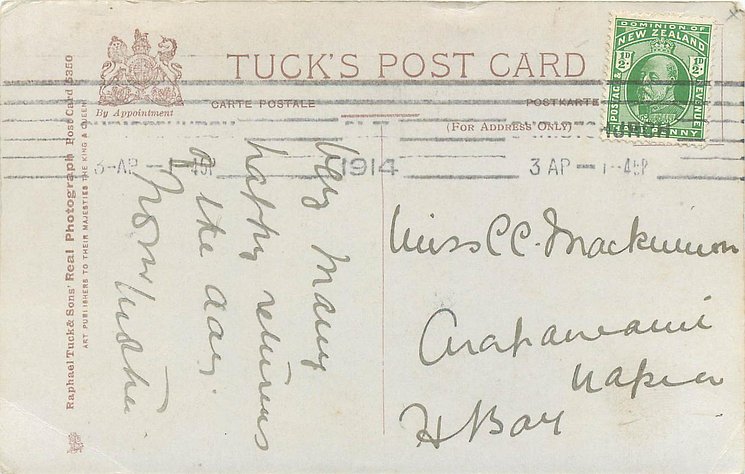 TUCK'S POST CARD
By Appointment
CARTE POSTALE
POSTKARTE
(FOR ADDRESS ONLY)
DOMINION OF
NEW ZEALAND
½D ½D
POSTAGE & REVENUE
PENNY
3 AP
1914
3 AP
Raphael Tuck & Sons' Real Photograph Post Card
ART PUBLISHERS TO THEIR MAJESTIES THE KING & QUEEN
Very many
happy returns
of the day.
from Mother
Miss C C. Mackinnon
Napier
H Bay